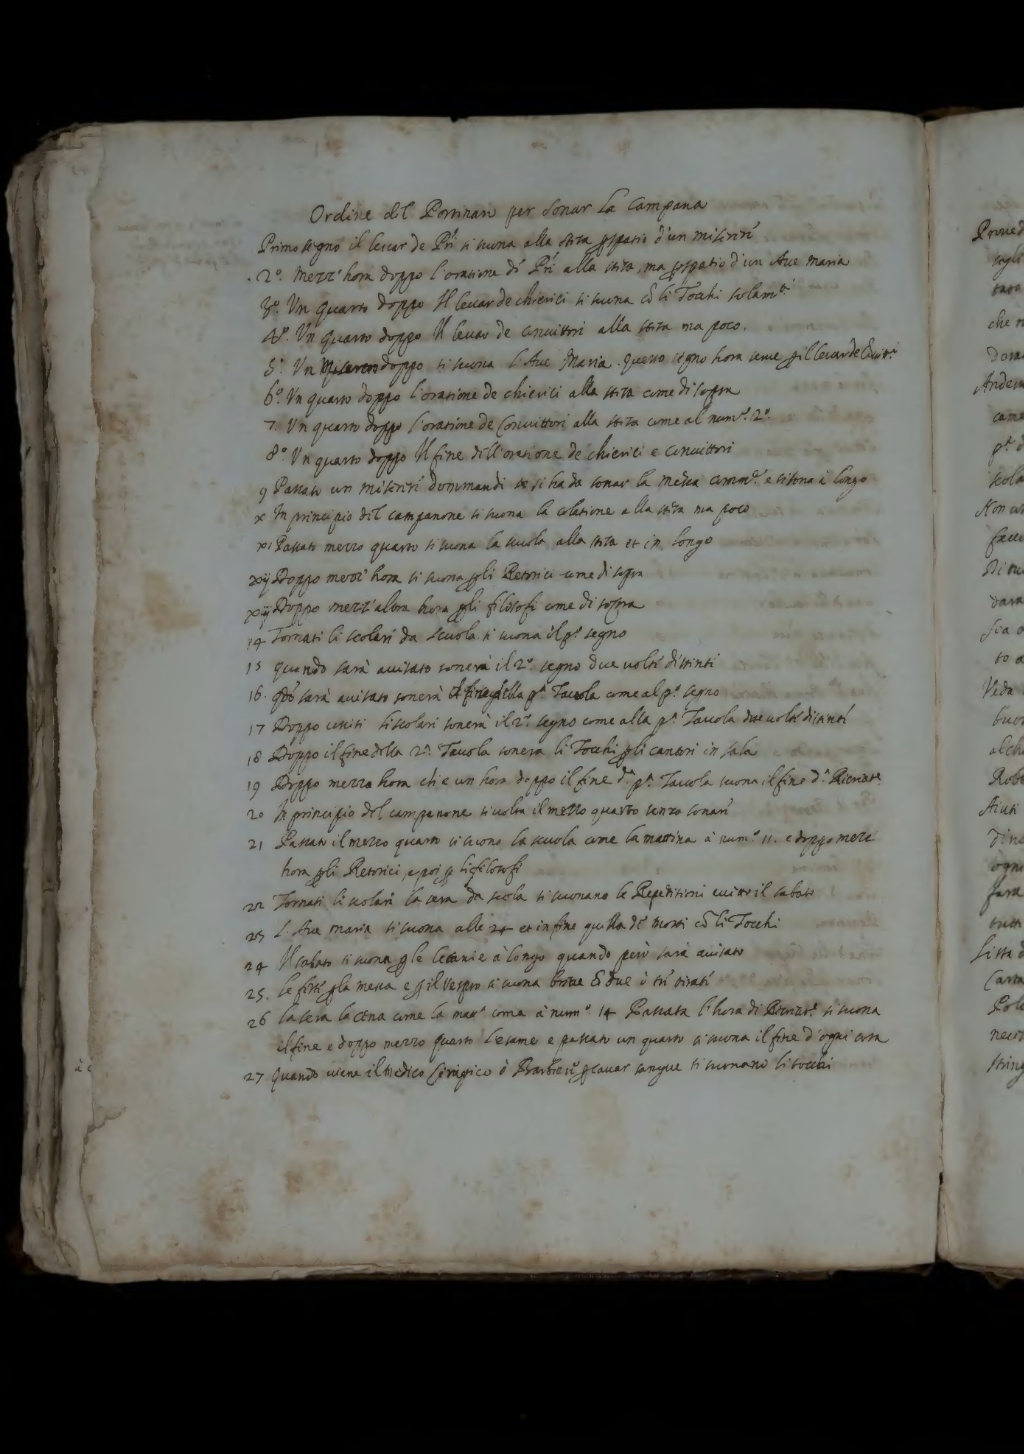 Ordine del Portinaro per sonar la Campana
Primo segno il levar de Pri si suona alla stesa p spatio d'un miserere
2º. Mezz' hora doppo l'oratione de Pri alla stesa, ma p spatio d'un Ave maria
3º. Un quarto doppo Il levar de chierici si suona cõ li Tocchi solamte.
4º. Un quarto doppo Il levar de convittori alla stesa ma poco.
5º. Un Miserere doppo si suona l'Ave Maria. questo segno hora serve p il levar de
6º. Un quarto doppo l'oratione de chierici alla stesa come di sopra
7. Un quarto doppo l'oratione de Convittori alla stesa come al numº. 2º
8º Un quarto doppo Il fine dell'oratione de chierici e convittori
9 Passato un miserere domandi se si ha da sonar la messa e si sona à longo
x In principio del campanone si suona la colatione alla stesa ma poco
xi Passato mezzo quarto si suona la scuola alla stesa et in longo
xij Doppo mezz' hora si suona p gli Retorici come di sopra
xiij Doppo mezz'altra hora p gli filosofi come di sopra
14 Tornati li scolari da scuola si suona il pº segno
15 quando sarà avisato sonerà il 2º segno due volte distinti
16. qdo sarà avisato sonerà il fine della pª Tavola come al pº segno
17 Doppo usciti li scolari sonerà il 2º. segno come alla pª Tavola due volte distinti
18 Doppo il fine della 2ª. Tavola sonera li Tocchi p gli cantori in sala
19 Doppo mezza hora, ch'e un hora doppo il fine dª pª Tavola suona il fine dª Ricreatᵉ
20 In principio del campanone si volta il mezzo quarto senza sonare
21 Passato il mezzo quarto si suona la scuola come la mattina à numº 11. e doppo mezz
hora p gli Retorici, e poi p li filosofi
22 Tornati li scolari la sera da scola si suonano le Repetitioni eccetto il sabato
23 L'Ave maria si suona alle 24 et in fine quella de morti cõ li Tocchi
24 Il sabato si suona p le letanie à longo quando però sarà avisato
25. le feste p la messa e p il Vespro si suona breve di due ò tre tirate
26 la sera la cena come la matª come à numº 14 Passata l'hora di Ricreatᵉ. si suona
il fine e doppo mezzo quarto l'esame e passato un quarto si suona il fine d'ogni cosa
27 Quando viene il Medico Cirugico ò Barbiere p cavar sangue si suonano li tocchi